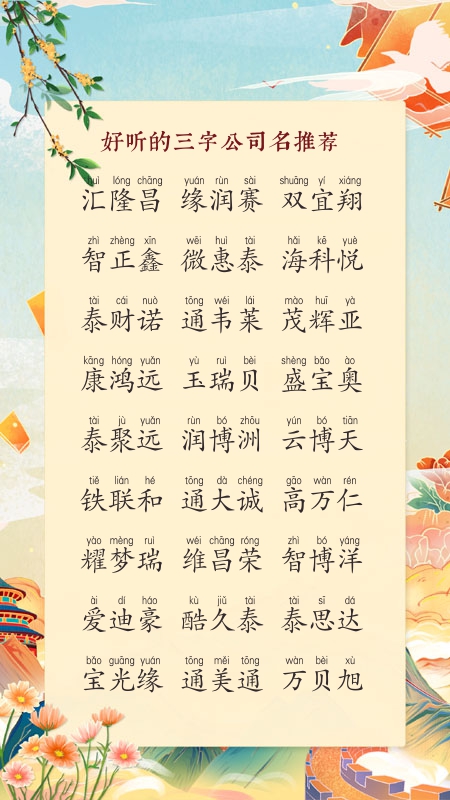 好听的三字公司名推荐
huì lóng chāng yuán rùn sài shuāng yí xiáng
汇隆昌 缘润赛 双宜翔
zhì zhèng xīn wēi huì tài hǎi kē yuè
智正鑫 微惠泰 海科悦
tài cái nuò tōng wéi lái mào huī yà
泰财诺 通韦莱 茂辉亚
kāng hóng yuǎn yù ruì bèi shèng bǎo ào
康鸿远 玉瑞贝 盛宝奥
tài jù yuǎn rùn bó zhōu yún bó tiān
泰聚远 润博洲 云博天
tiě lián hé tōng dà chéng gāo wàn rén
铁联和 通大诚 高万仁
yào mèng ruì wéi chāng róng zhì bó yáng
耀梦瑞 维昌荣 智博洋
ài dí háo kù jiǔ tài tài sī dá
爱迪豪 酷久泰 泰思达
bǎo guāng yuán tōng měi tōng wàn bèi xù
宝光缘 通美通 万贝旭